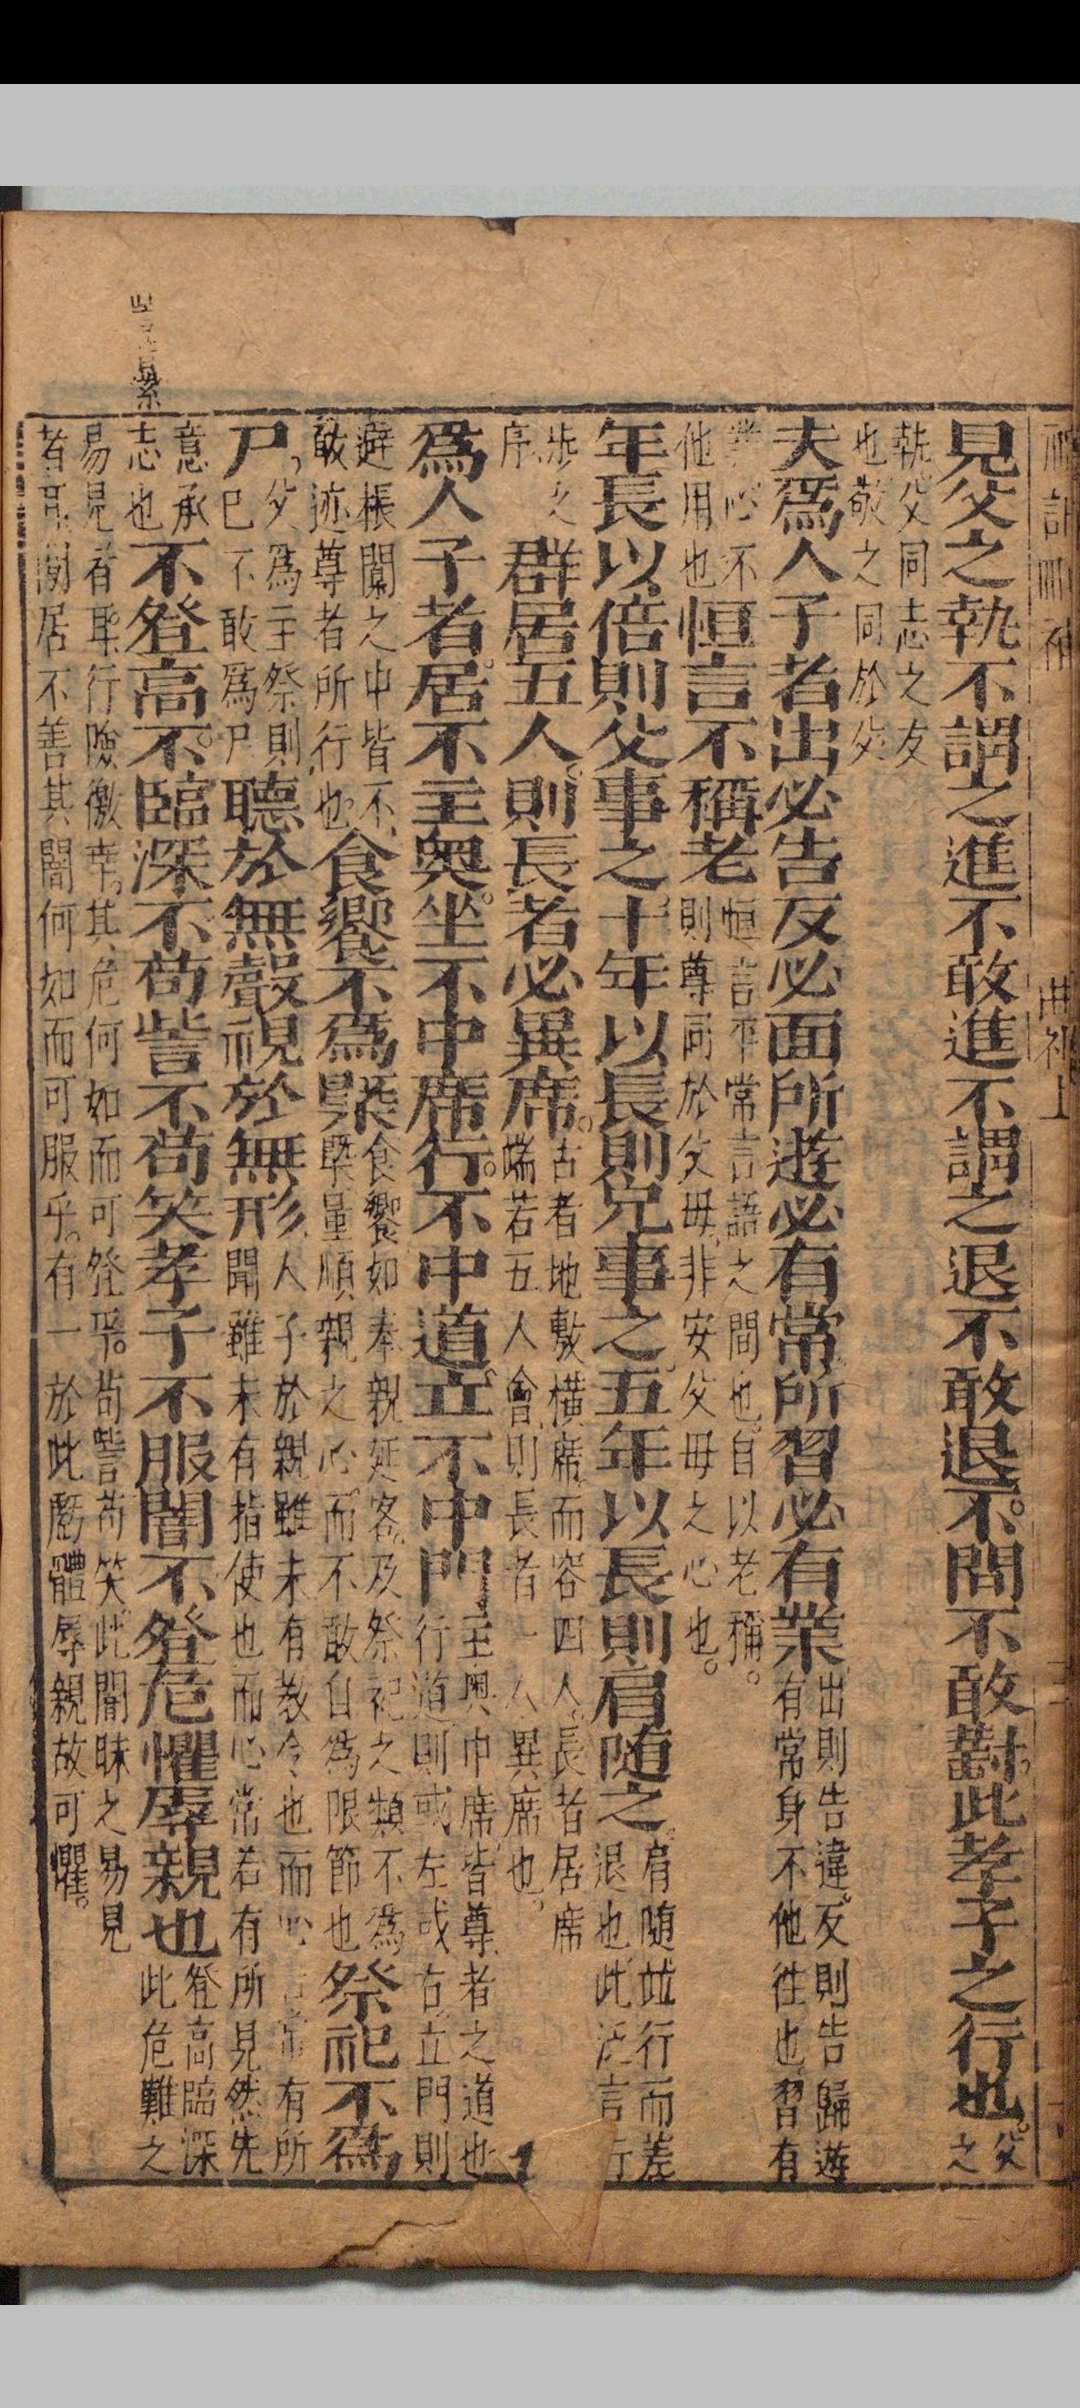 曲礼上
見父之執不謂之進不敢進不謂之退不敢退不問不敢對此孝子之行也父之
執父同志之友也敬之同於父
夫爲人子者出必告反必面所遊必有常所習必有業出則告違反則告歸遊有常身不他往也習有
業必不他用也恒言不稱老恒言平常言語之間也自以老稱則尊同於父母非安父母之心也
年長以倍則父事之十年以長則兄事之五年以長則肩随之肩随並行而差退也此泛言行
步之序群居五人則長者必異席古者地敷横席而容四人長者居席端若五人會則長者一人異席也
爲人子者居不主奥坐不中席行不中道立不中門主奥中席皆尊者之道也行道則或左或右立門則
避棖闑之中皆不敢迹尊者所行也食饗不爲槩食饗如奉親延客及祭祀之類不爲槩量順親之心而不敢自爲限節也祭祀不爲
尸父爲主祭則己不敢爲尸聴於無聲視於無形人子於親雖未有教令也而心常有所聞雖未有指使也而心常若有所見然先
意承志也不登高不臨深不苟訾不苟笑孝子不服闇不登危懼辱親也登高臨深此危難之
易見者耳行險徼幸其危何如而可登乎苟訾苟笑此闇昧之易見者耳闇居不善其闇何如而可服乎有一於此虧體辱親故可懼